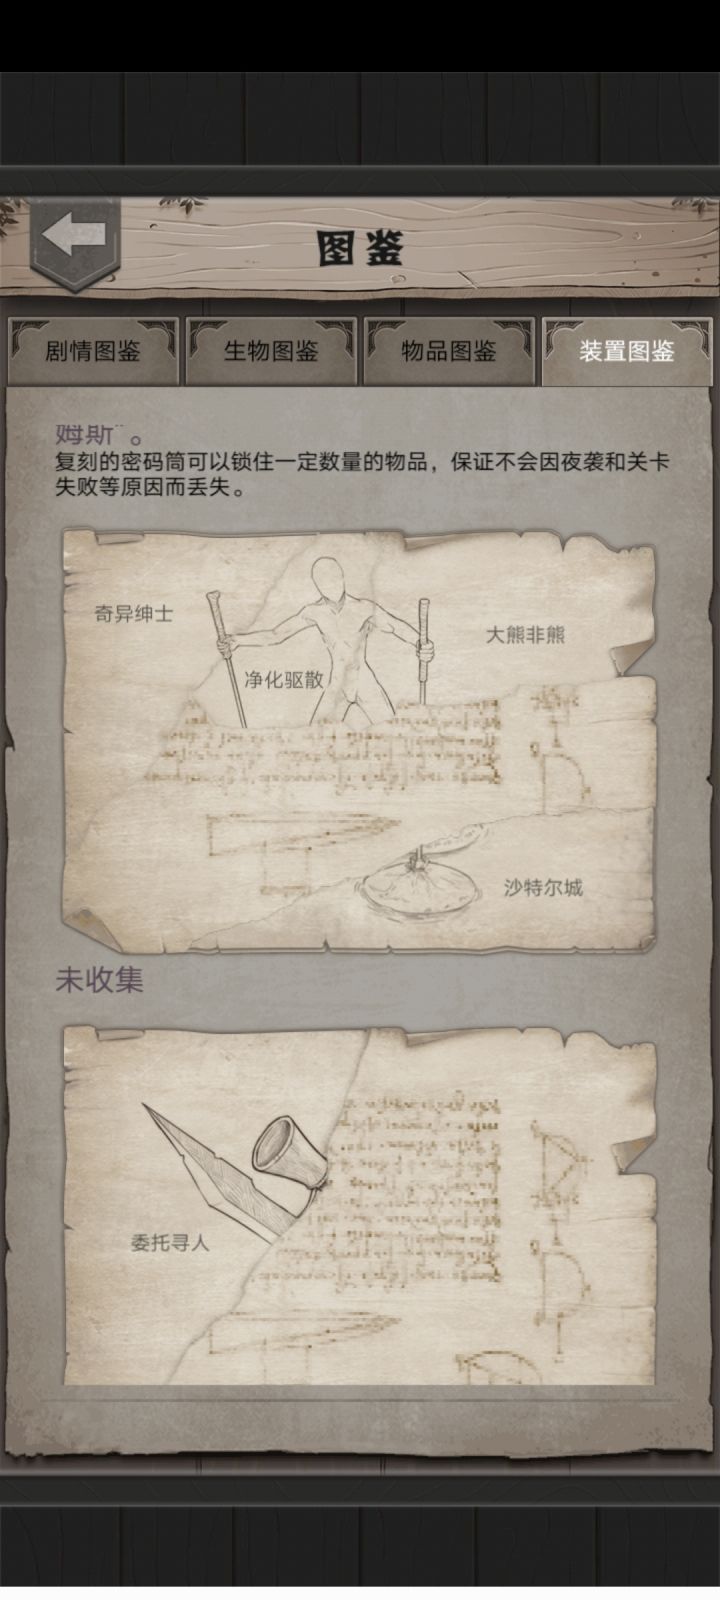 图鉴
剧情图鉴
生物图鉴
物品图鉴
装置图鉴
姆斯”。
复刻的密码筒可以锁住一定数量的物品，保证不会因夜袭和关卡
失败等原因而丢失。
奇异绅士
大熊非熊
净化驱散
沙特尔城
未收集
委托寻人